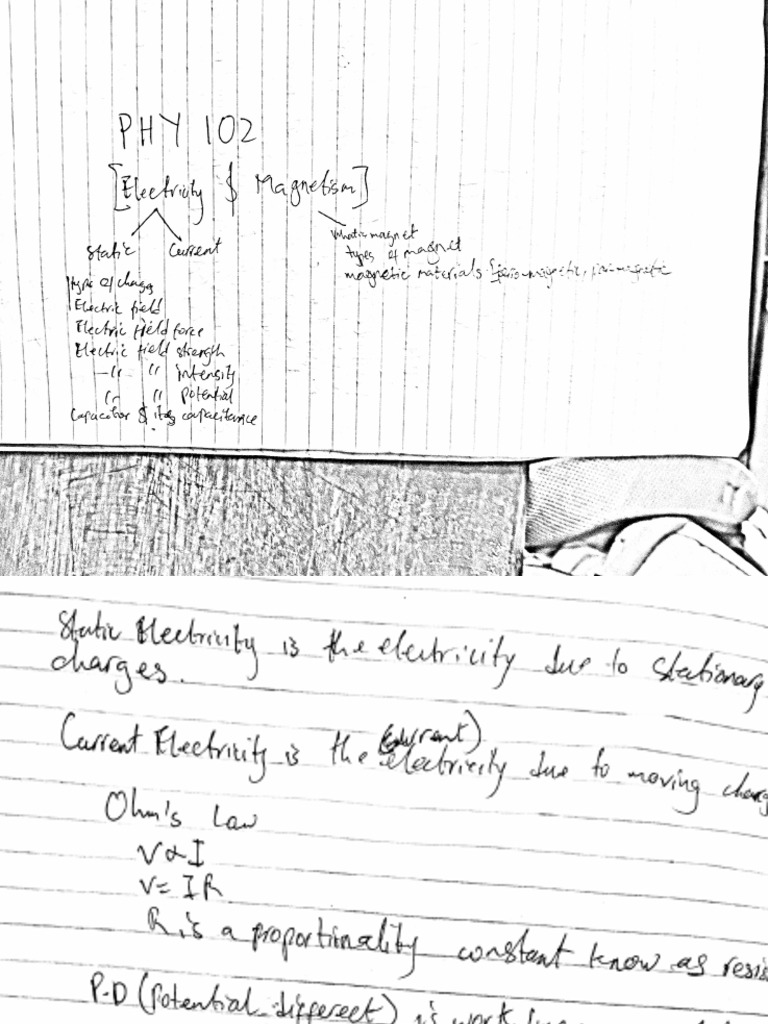 PHY 102
[Electricity & Magnetism]
Static Current
What is magnet
types of magnet
magnetic materials
types of charges
Electric field
Electric field force
Electric field strength
–〃 〃 intensity
〃 〃 potential
Capacitor & its capacitance
Static Electricity is the electricity due to stationary
charges.
(current)
Current Electricity is the electricity due to moving
Ohm's Law
V ∝ I
V = IR
R is a proportionality constant know as
P.D (potential differect) is work